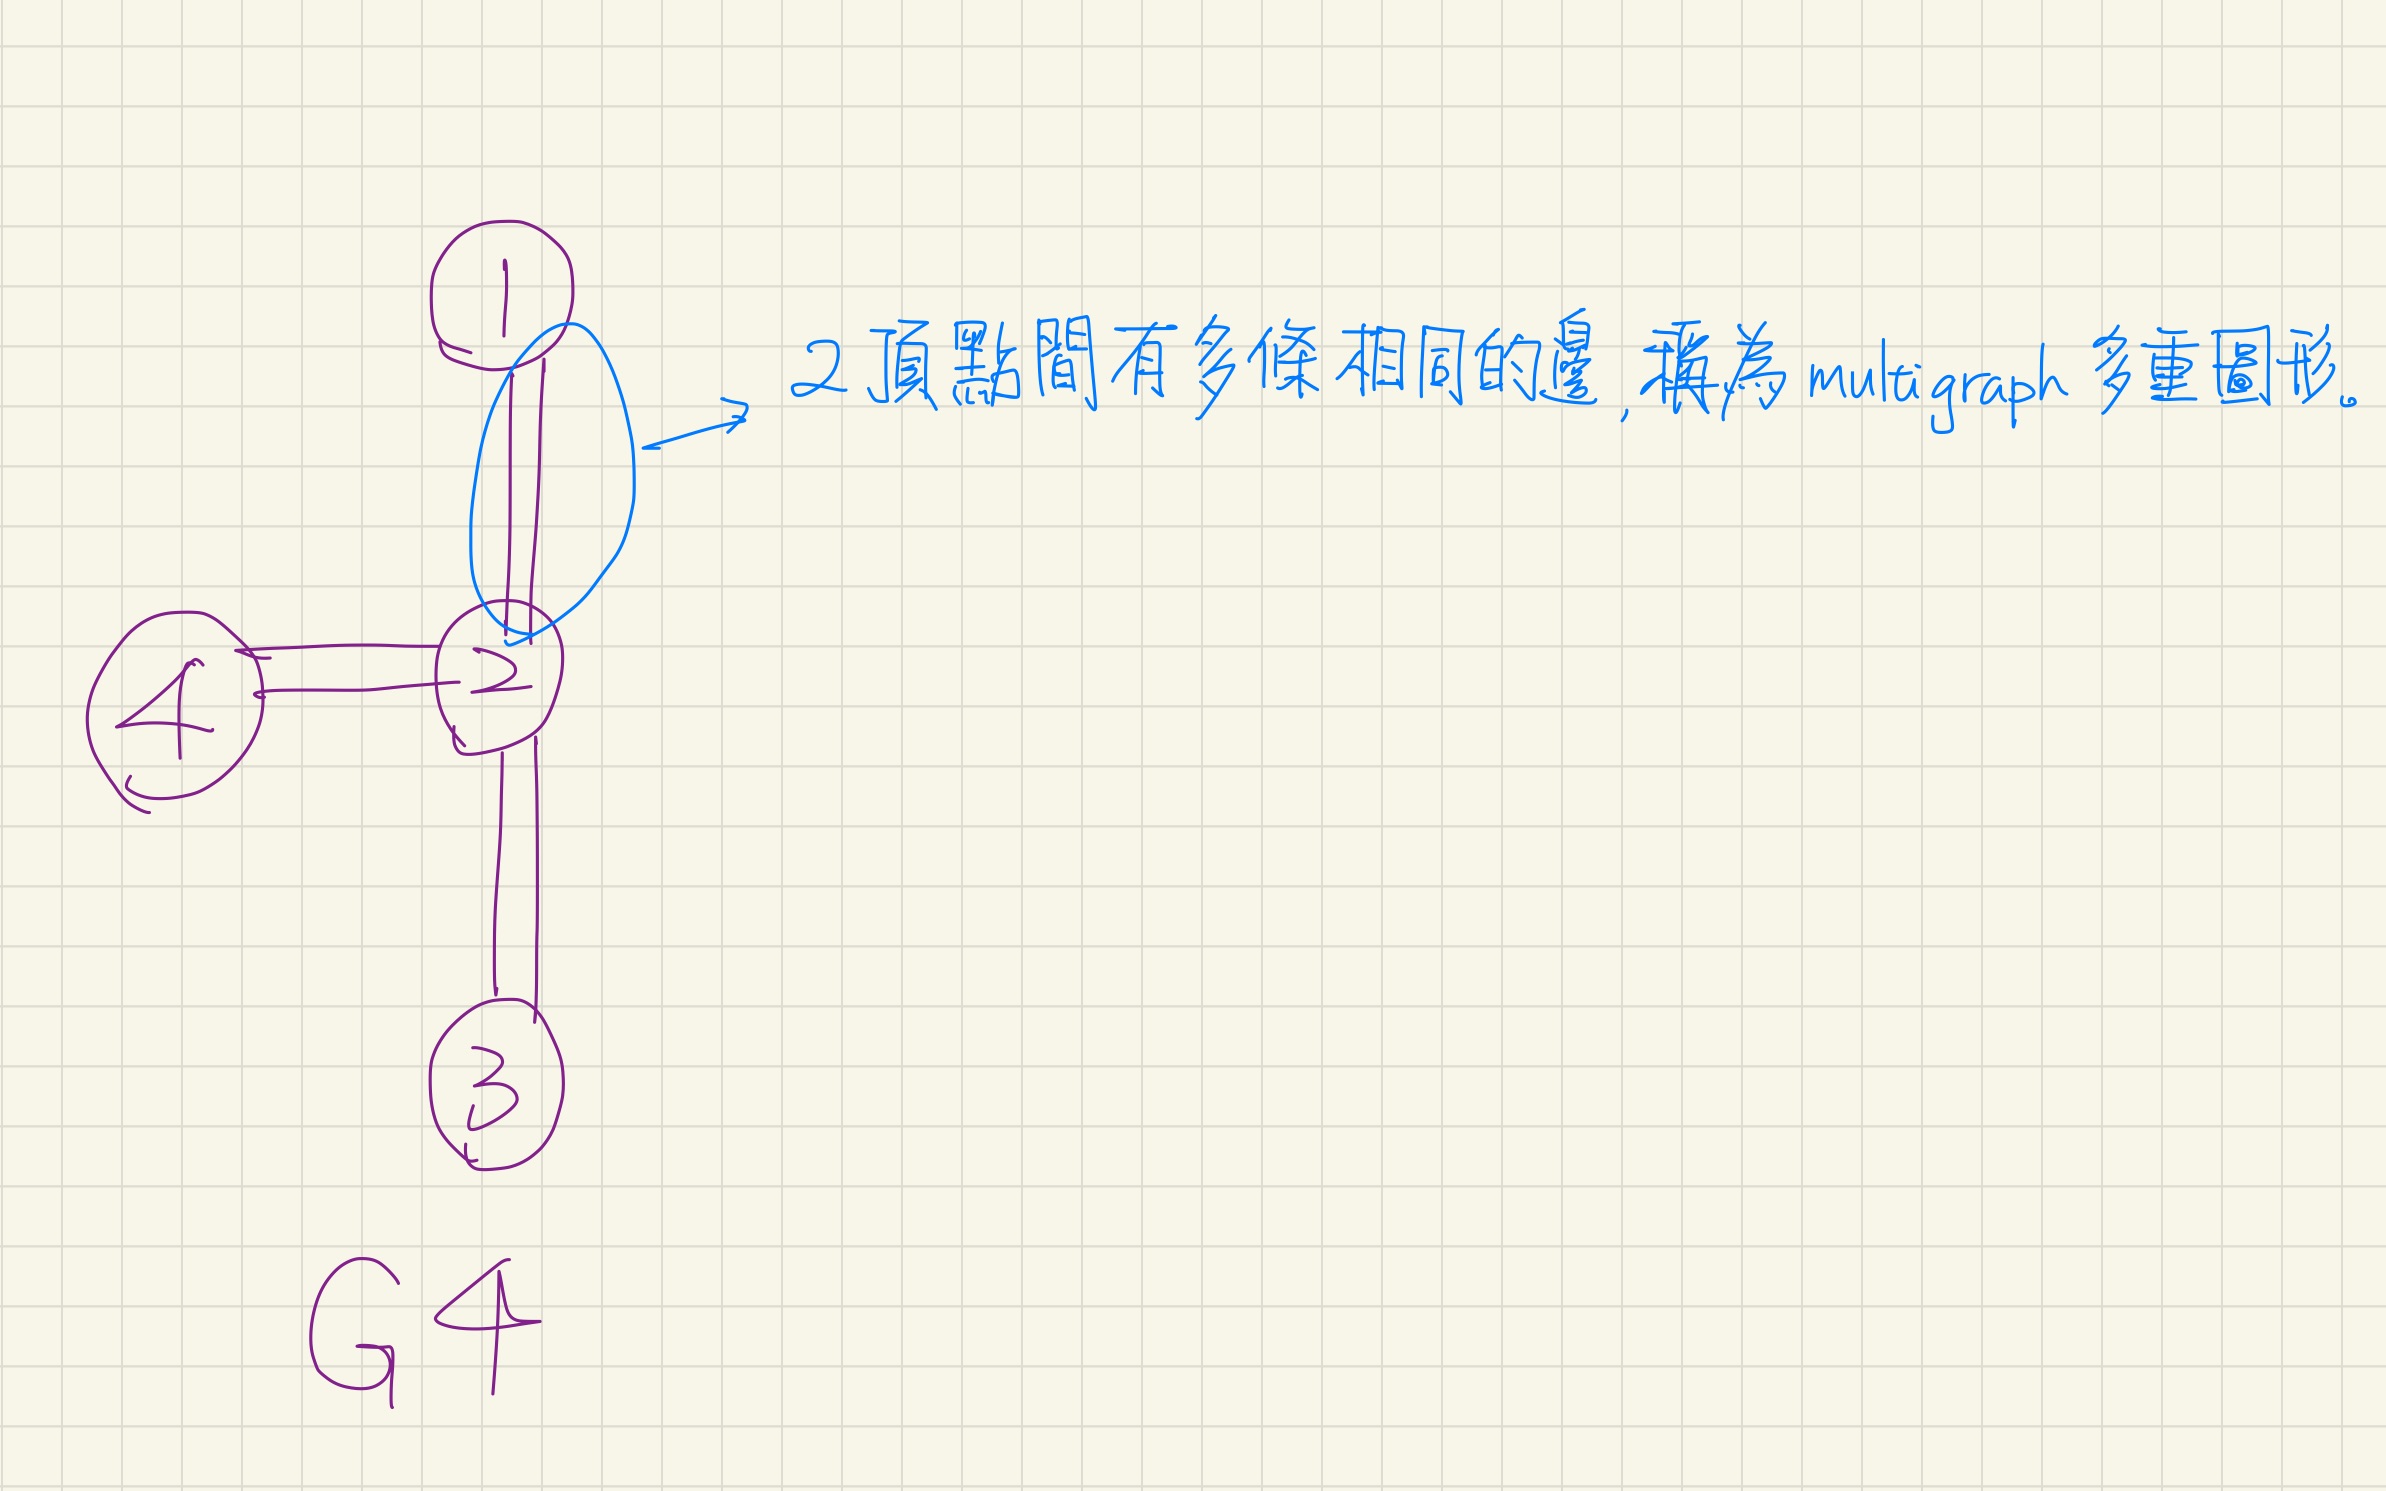 1
2頂點間有多條相同的邊,稱為multigraph 多重圖形。
4
2
3
G4